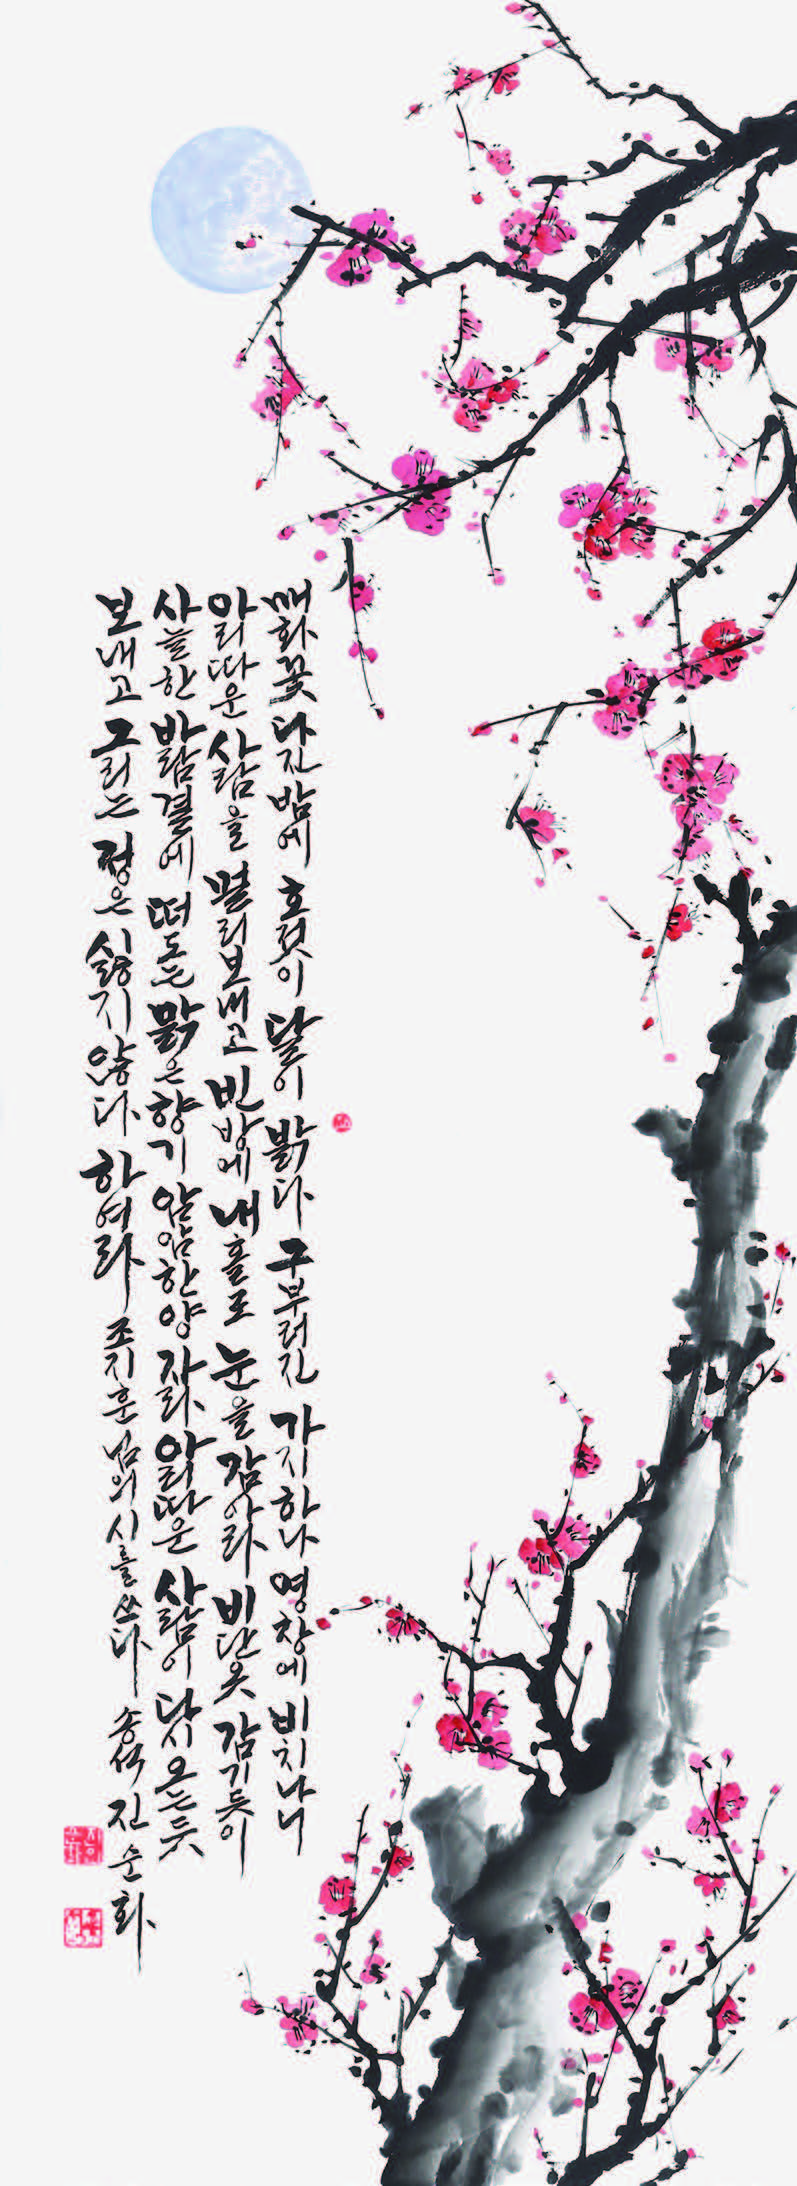 매화꽃 다진 밤에 호젓이 달이 밝다 구부러진 가지 하나 영창에 비치나니
아리따운 사람을 멀리 보내고 빈 방에 내 홀로 눈을 감아라 비단옷 감기듯이
사늘한 바람결에 떠도는 맑은 향기 암암한 양자라 아리따운 사람이 다시 오는 듯
보내고 그리는 정은 싫지 않다 하여라 조지훈 님의 시를 쓰다 송석 진순화